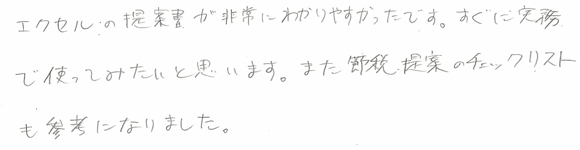 エクセルの提案書が非常にわかりやすかったです。すぐに実務
で使ってみたいと思います。また節税提案のチェックリスト
も参考になりました。